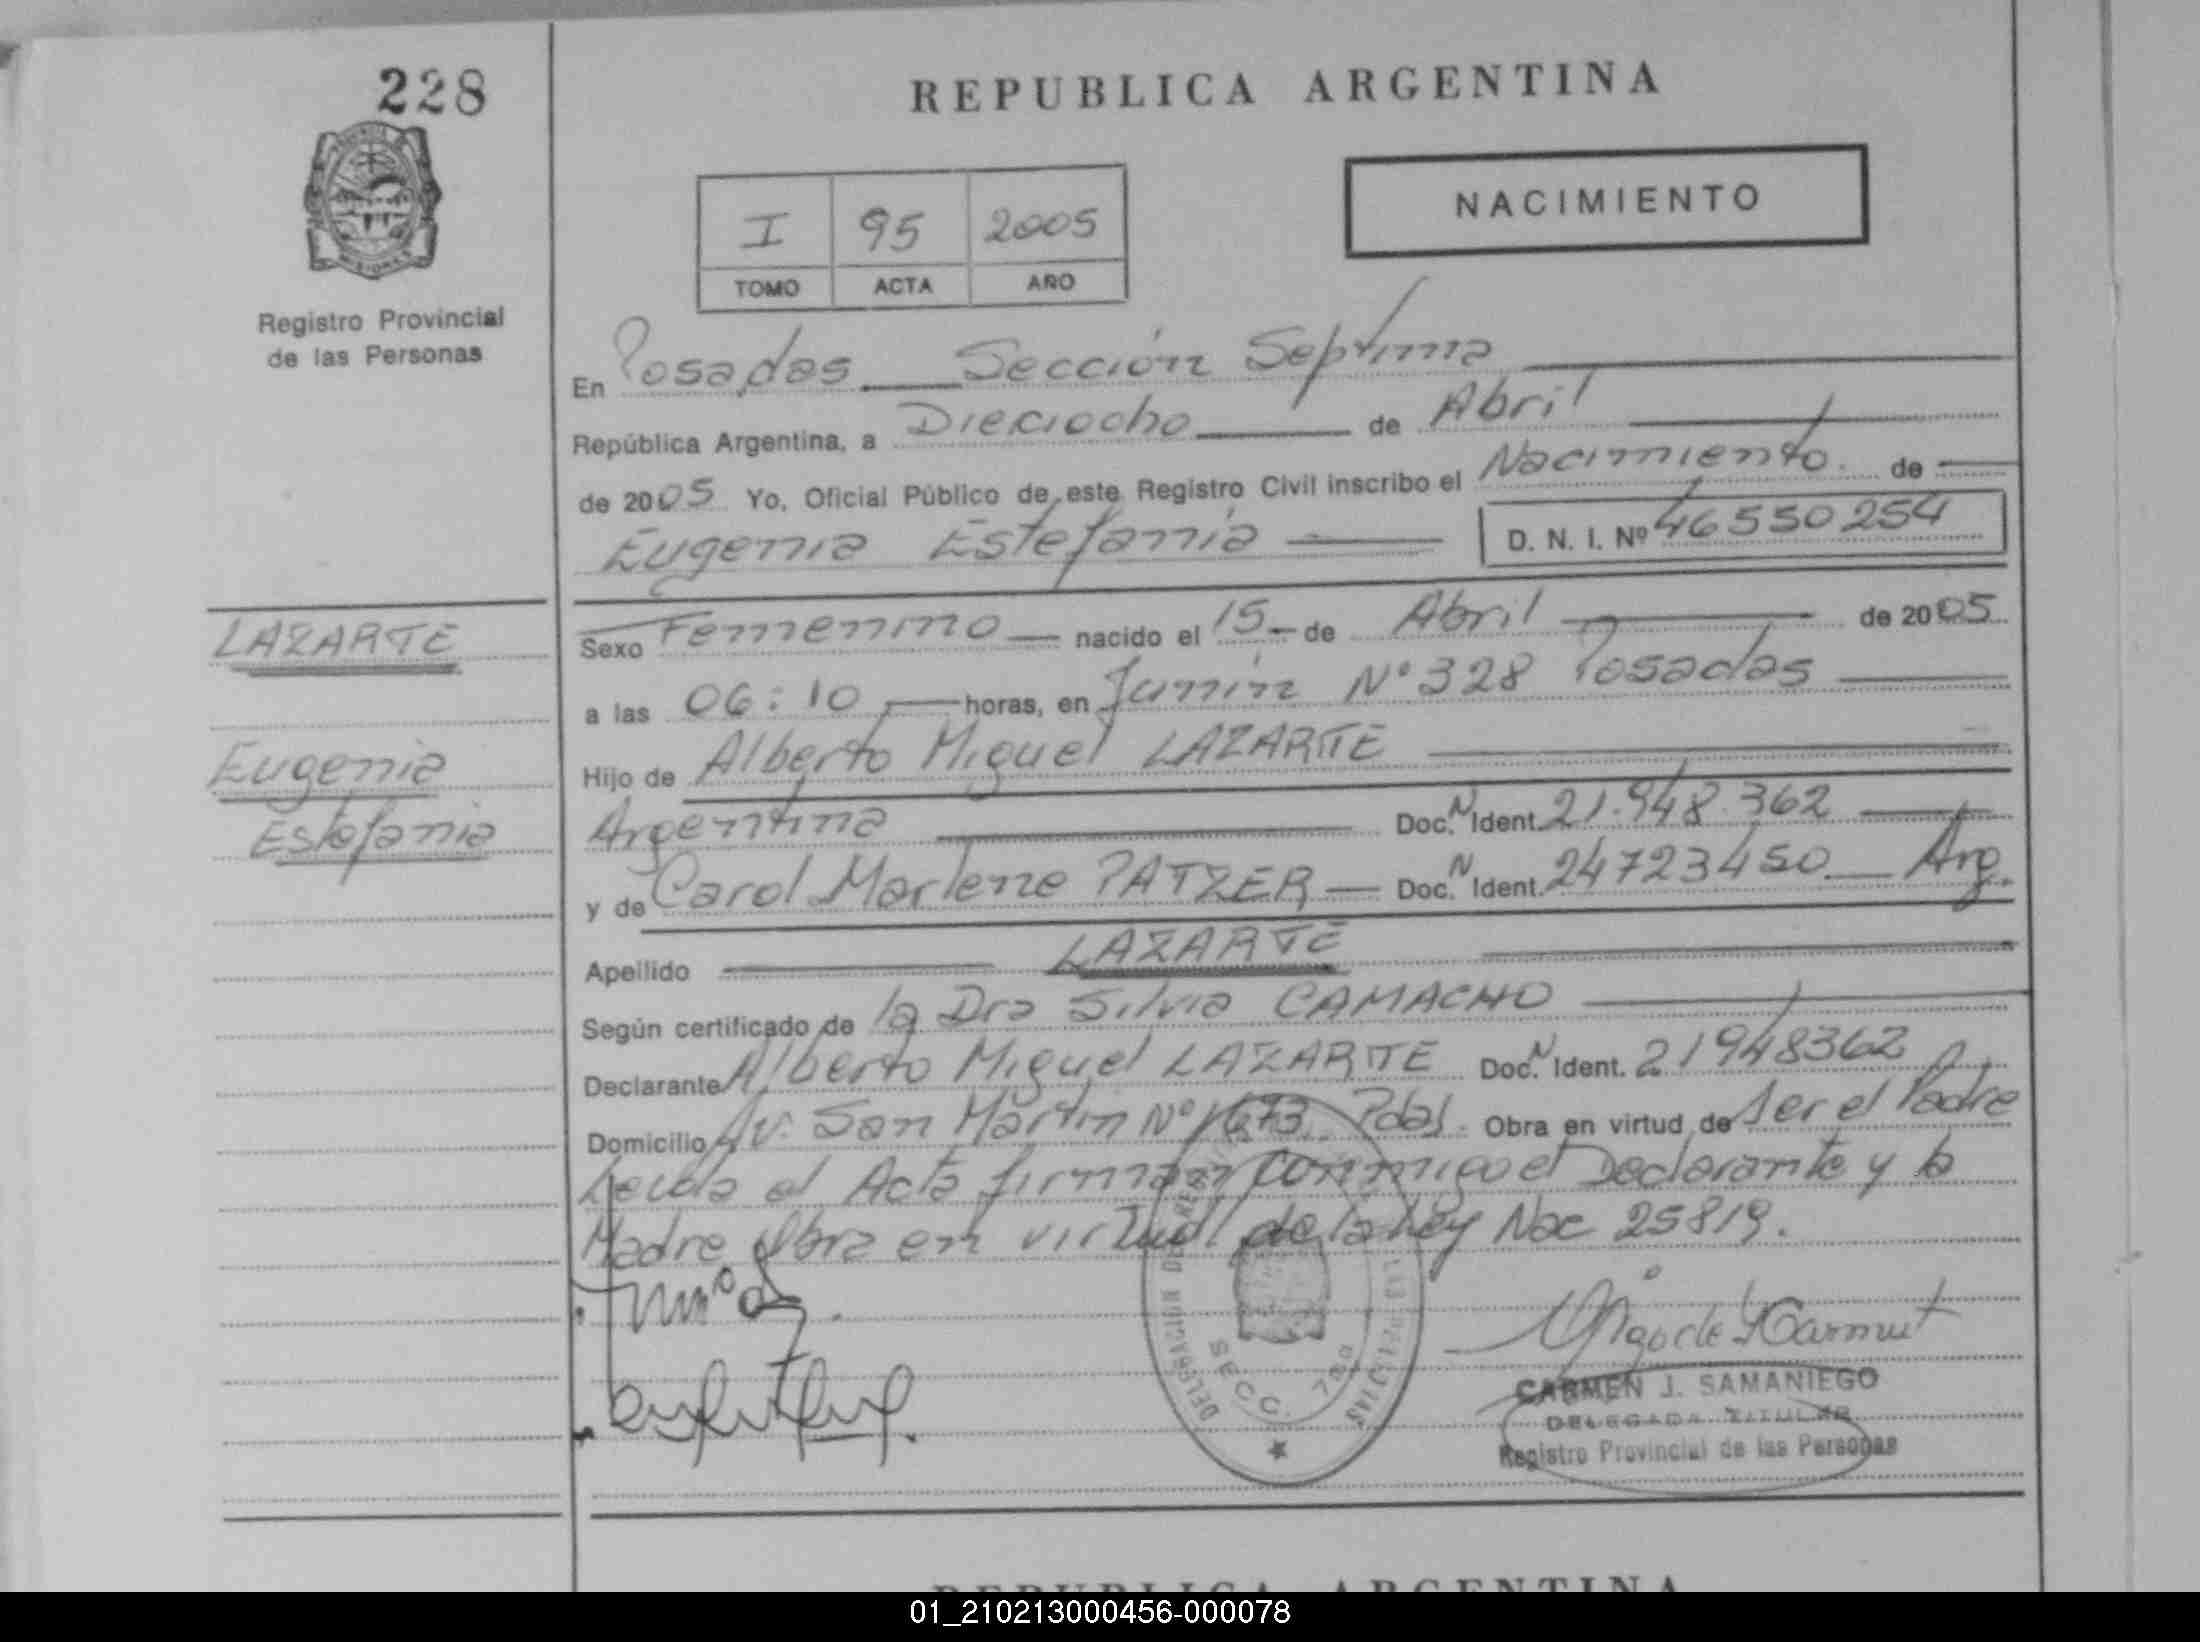 228
REPUBLICA ARGENTINA
NACIMIENTO
I 95 2005
TOMO ACTA AÑO
MISIONES
Registro Provincial
de las Personas
En Posadas Sección Septima
República Argentina, a Dieciocho de Abril
de 2005 Yo, Oficial Público de este Registro Civil inscribo el Nacimiento de
Eugenia Estefania D. N. I. Nº 46550254
LAZARTE
Sexo Femenino nacido el 15 de Abril de 2005
a las 06:10 horas, en Junin Nº 328 Posadas
Eugenia
Hijo de Alberto Miguel LAZARTE
Estefania
Argentina Doc. N Ident. 21.948.362
y de Carol Marlene PATZER Doc. N Ident. 24723450 Arg.
Apellido LAZARTE
Según certificado de la Dra Silvia CAMACHO
Declarante Alberto Miguel LAZARTE Doc. N Ident. 21948362
Domicilio Av. San Martin Nº 1673 Pdas. Obra en virtud de Ser el Padre
Leida el Acta firman conmigo el Declarante y la
Madre Obra en virtud de la Ley Nac 25819.
SECC. 7
CARMEN J. SAMANIEGO
DELEGADA TITULAR
Registro Provincial de las Personas
REPUBLICA ARGENTINA
01_210213000456-000078